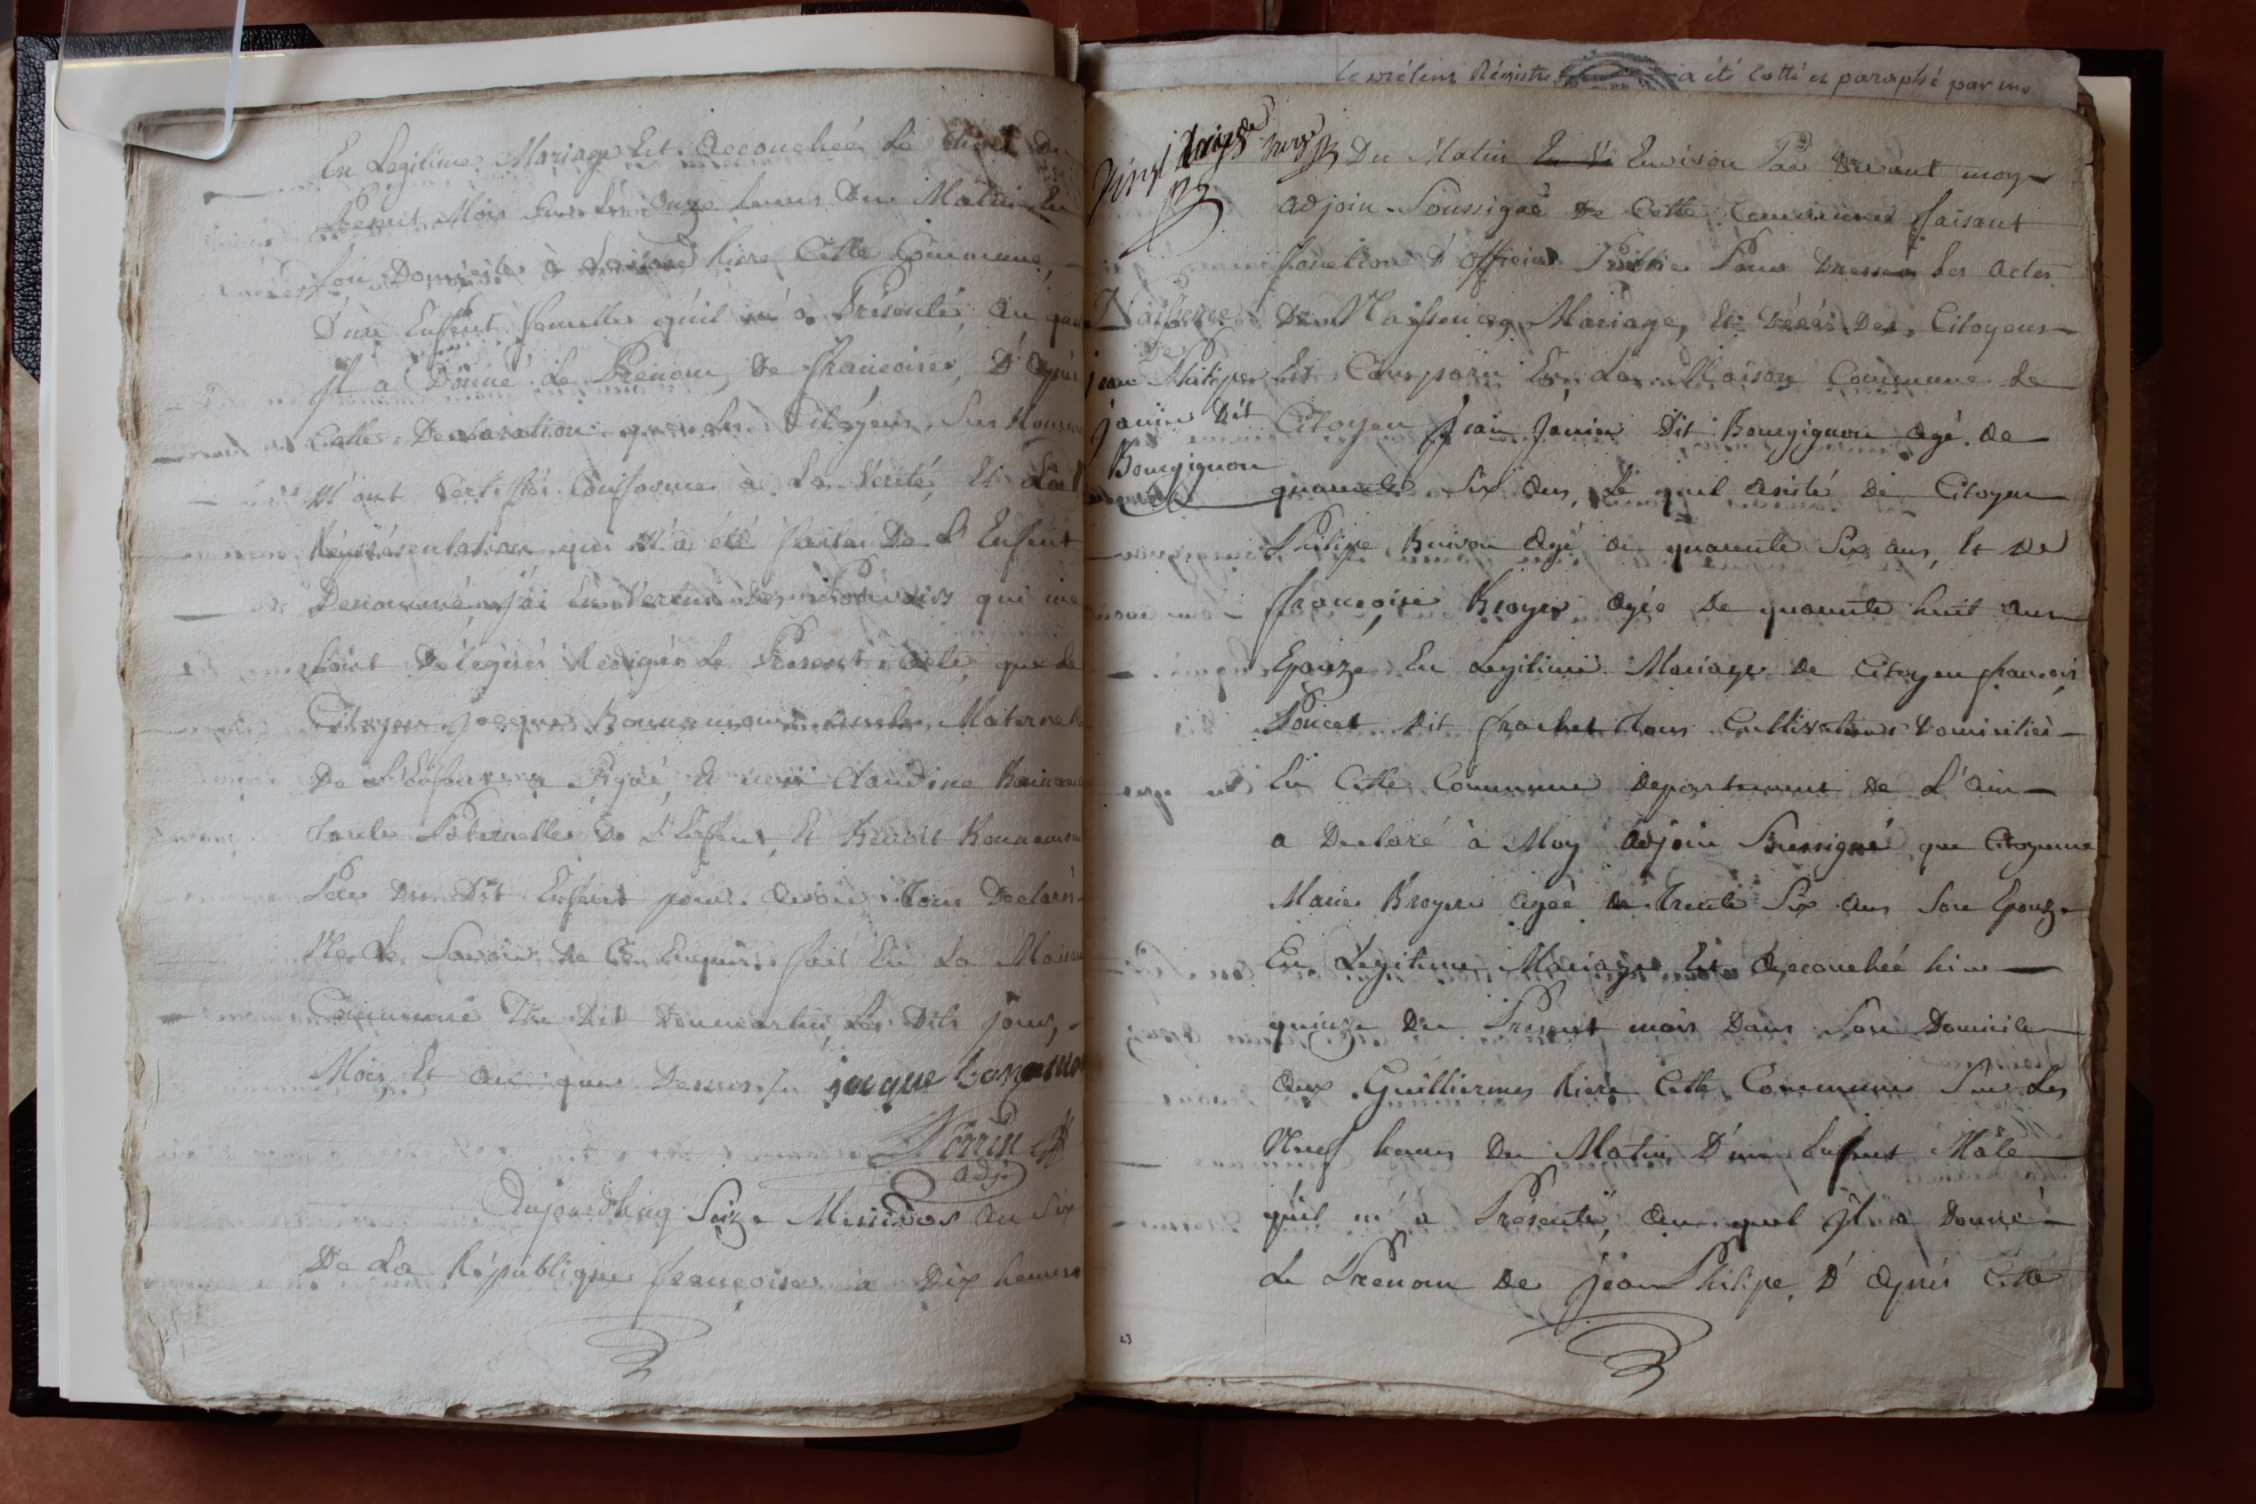 En Legitime Mariage Est Accouchée Le
Present Mois Sur Les Onze heures Du Matin En
Son Domicile à hiere Cette Commune,
D'une Enfent femelle qu'il m'a Présentés, au quel
Il a Donné Le Prenom De françoise, D'Après
Cette Declaration que les Citoyens Sus Nommé
M'ont Certiffié Conforme à La Vérité, Et La
Représentation qui M'a été faite De L'Enfent
Denommé, J'ai En Vertus des Pouvoirs qui me
Sont Delegués Redigés Le Present Acte, que Le
Citoyen Jacques Bonnamour oncle Maternel
De L'Enfent a Signé, Et non Claudine
tante Paternelle De L'Enfent, Et Benoit Bonnamour
Pere Du Dit Enfent pour Avoir Tous Declarés
Ne Le Savoir De Ce Enquis. fait En La Maison
Commune Du Dit Dommartin Les Dits jour,
Mois Et an que Dessus /. jacque bonamour
Perrin
adj.
Aujourdhuy Seize Messidor An Six
De La République françoise à Dix heures
Le présent Régistre a été cotté et paraphé par moy
Du Matin Environ Par Devant moy
Adjoin Soussigné De Cette Commune faisant
fonctions D'Officier Public Pour Dresser Les Actes
Naissence De Naissences, Mariage, Et Décès Des Citoyens
De
jean Philipe Est Comparu En La Maison Commune Le
janin Dit Citoyen Jean Janin Dit Bourgignon Agé de
Bourgignon
quarente Six Ans, Le quel Asisté De Citoyen
Philipe Buivon Agé de quarente Six ans, Et De
françoise Broyer Agée De quarente huit Ans
Epouze En Legitime Mariage De Citoyen françois
Poncet Dit frachet Tous Cultivateurs Domiciliés
En Cette Commune Departement De L'Ain
a Declaré à Moy Adjoin Soussigné que Citoyenne
Marie Broyer Agée De Trente Six Ans Son Epouze
En Legitime Mariage Est Accouchée hier
quinze Du Present mois Dans Son Domicile
Aux Guilliermes hiere Cette Commune Sur Les
Neuf heures Du Matin D'un Enfent Mâle
qu'il m'a Présenté, Au quel Il a Donné
Le Prenom De jean Philipe, D'Après Cette